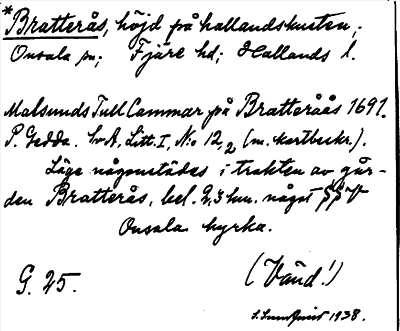 *Bratterås, höjd på hallandskusten;
Onsala sn; Fjäre hd; Hallands l.
Malsunds Tull Cammar på Bratteråås 1691.
P. Gedda. KrA, Litt. I, N:o 12,2 (m. kartbeskr.).
Läge någonstädes i trakten av går-
den Bratterås, bel. 2,3 km. något SSV
Onsala kyrka.
G. 25. (Vänd!)
1938.